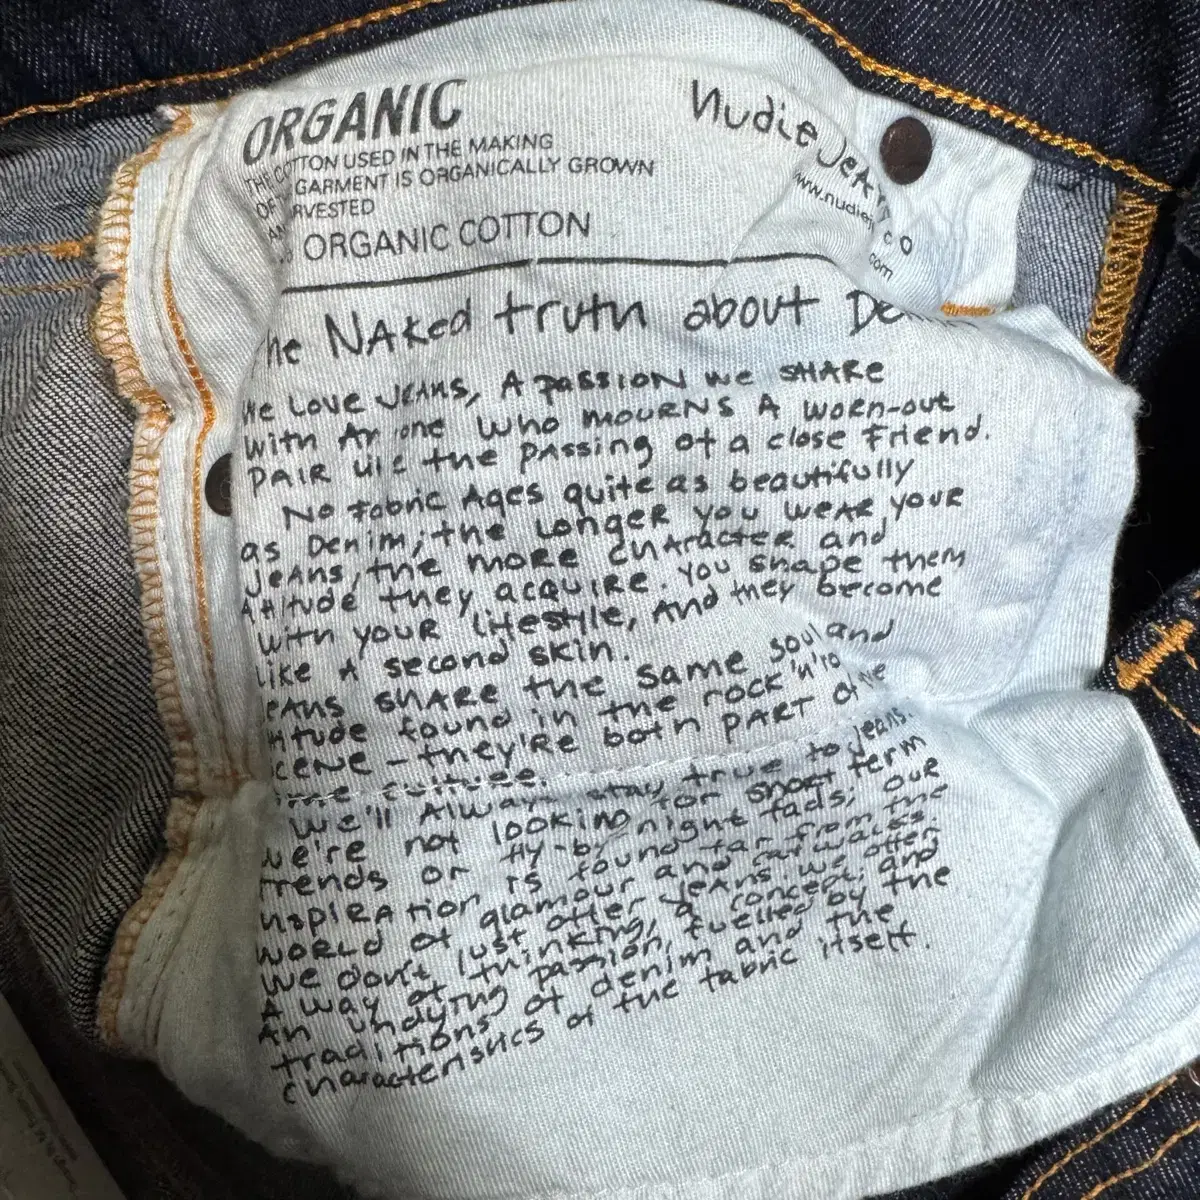 ORGANIC
THE COTTON USED IN THE MAKING
OF GARMENT IS ORGANICALLY GROWN
RVESTED
ORGANIC COTTON
Nudie Jea
www.nudie
co
.com
he NAKed truth about De
We Love JEANS, A passion we SHARe
with An one who mourns A worn-out
PAIR the passing of a close friend.
No fabric Ages quite as beautifully
as Denim; the longer you wear your
jeans, the more character and
Attitude they acquire. You shape them
with your lifestyle, And they become
like A second skin.
eans share the same soul and
titude found in the rock 'n' ro
cene - they're both part of we
me culture.
We'll Alway stay true to jeans.
we're not looking for short term
trends or fly-by night fads; our
inspiration is found far from the
world of glamour and catwalks.
We don't just offer jeans, we offer
A way of thinking, a concept, and
An undying passion, fuelled by the
traditions of denim and the
characteristics of the fabric itself.